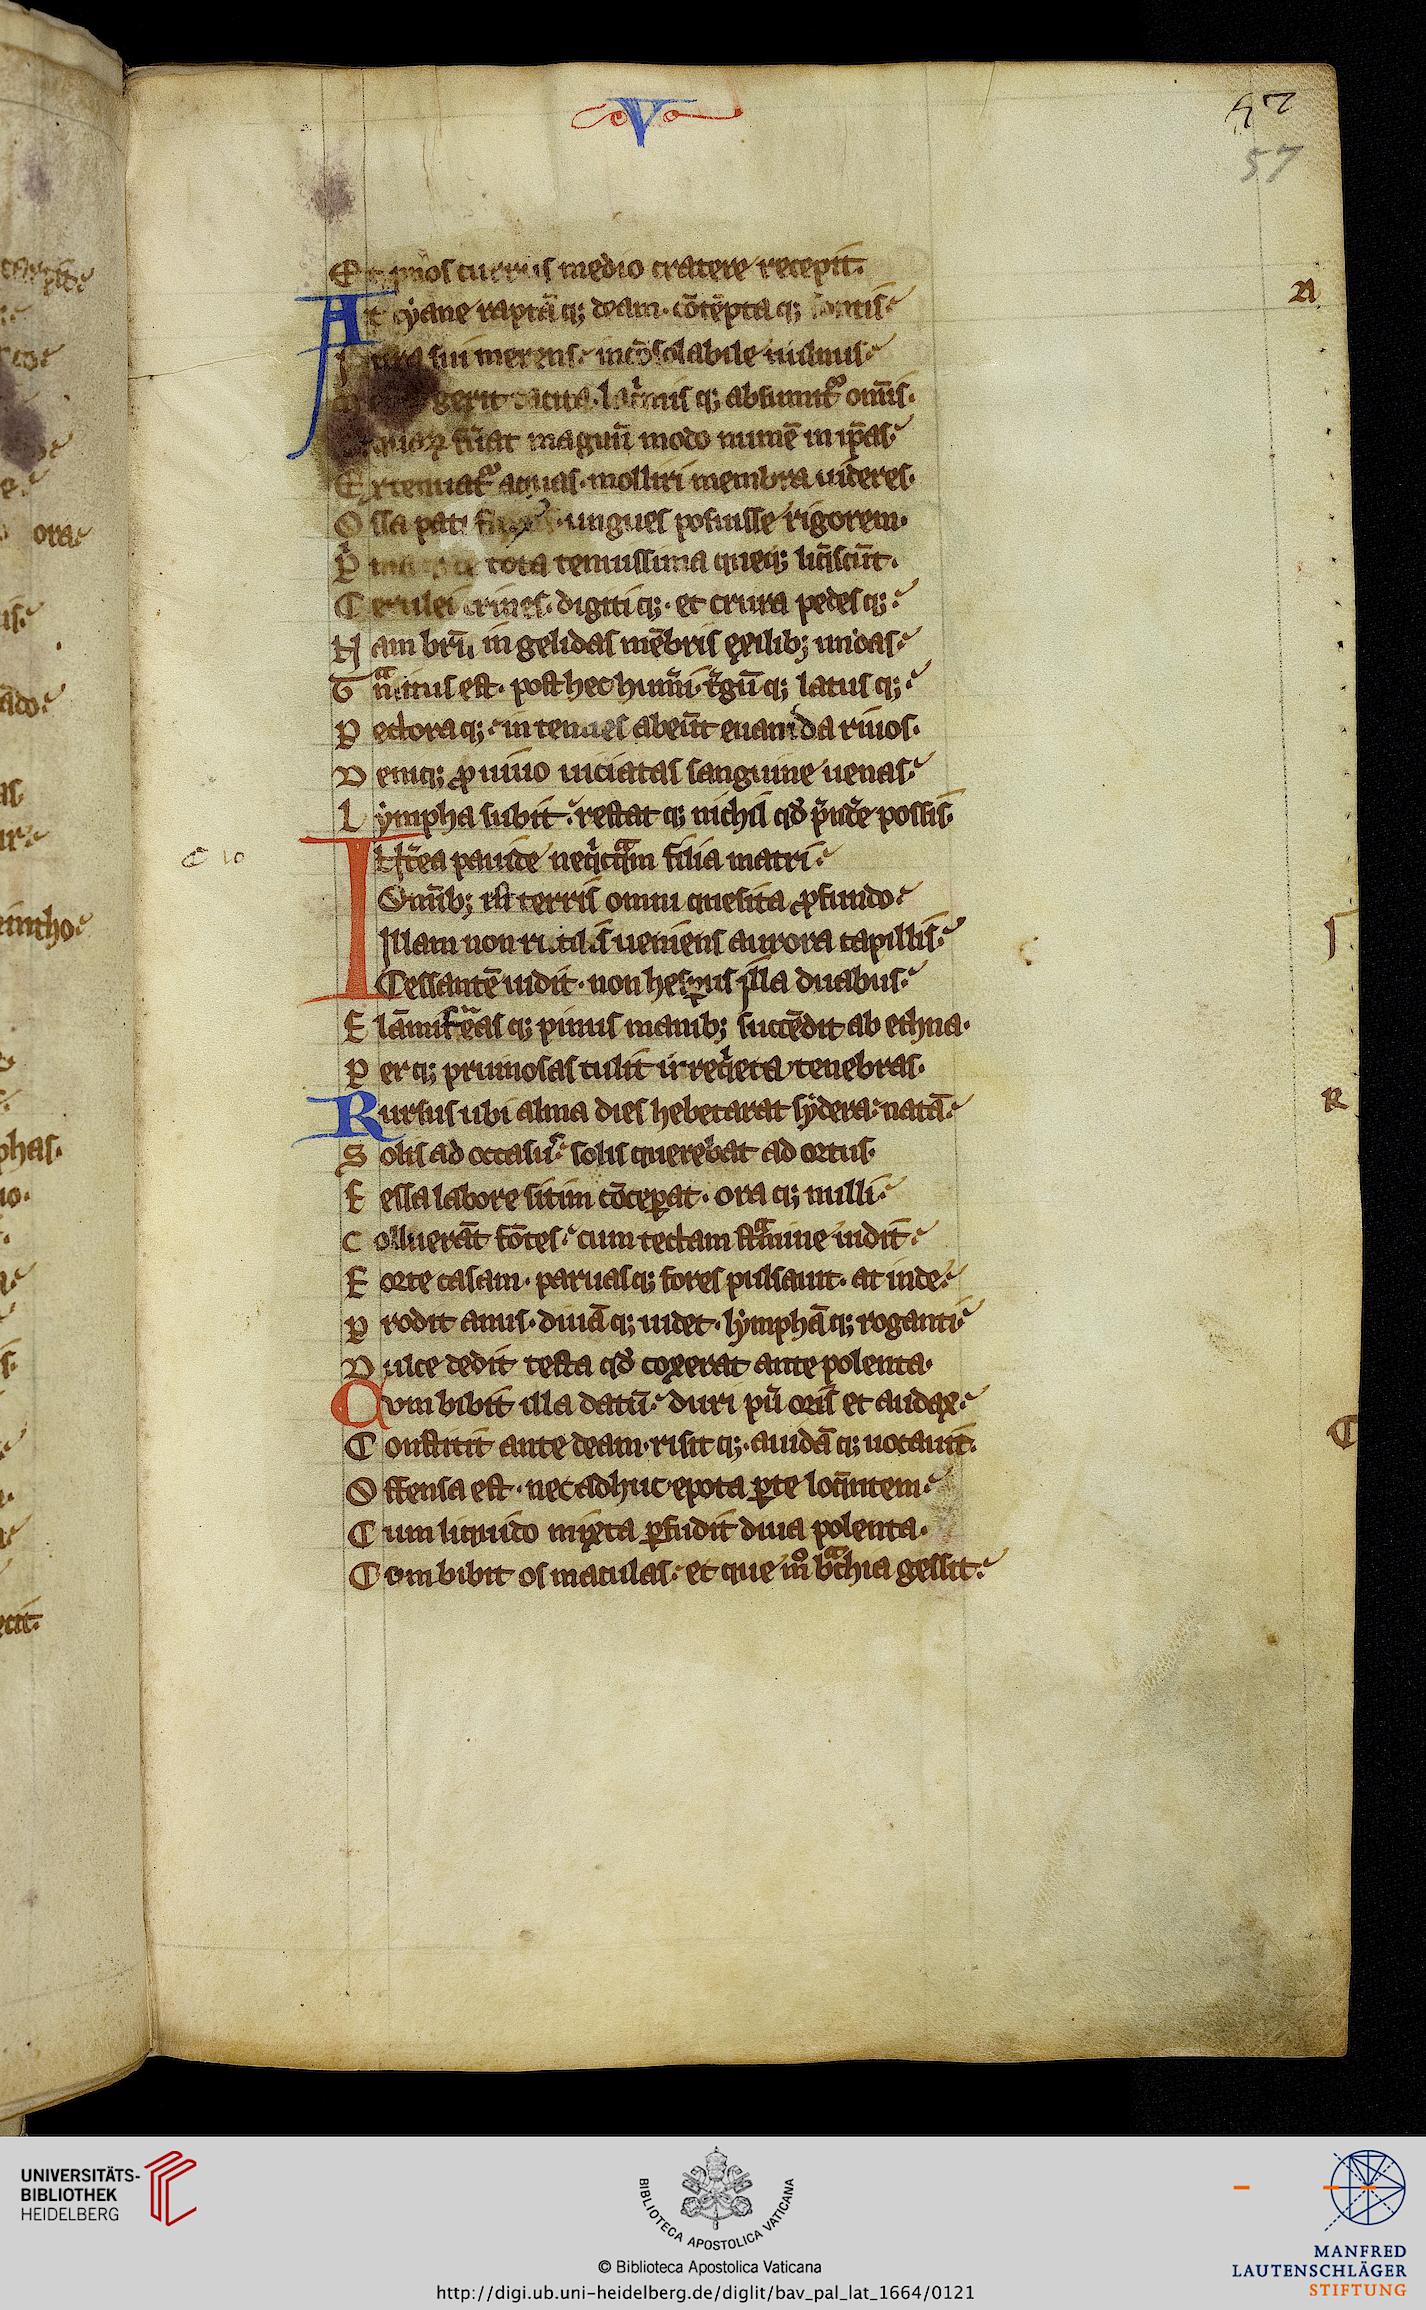 V
57
57
Et pͥnos currus medio cratere recepit.
At cyane raptā q; deam. cōtēpta q; fontis
sui merens incōsolabile uulnus
gerit tacita. lacͥmis q; absumit᷑ om̄is.
quaꝝ fuat magnū modo numē in ip̄as
Extenuat᷑ aquas. molliri membra uideres.
Ossa pati ungues posuisse rigorem.
Pͥ tota tenuissima queq; liqͥscūt.
Cerulei crines. digiti q;. et crura pedes q;
Nam breū in gelidas mēbris exilib; undas
Tͣnsitus est. post hec humͥi. tergū q; latus q;
Pectora q; in tenues abeūt euanida riuos.
Deniq; ꝓ uiuo uiciatas sanguine uenas
Lympha subit. restat q; nichil qd̄ pͥndē possis.
Intͥea pauide neqͥcqͣm filia matri
Omīb; est terris omni quesita ꝓfundo
Illam non rutilis ueniens aurora capillis
Cessantē uidit. non hesꝑus illa duabus
Flāmifͥeas q; pinus manib; succēdit ab ethna.
Per q; pruinosas tulit irreqͥeta tenebras.
Rursus ubi alma dies hebetarat sydera natā
Solis ad occasū solis querebat ad ortus.
Fessa labore sitim cōceꝑat. ora q; nulli
Colluerāt fōtes. cum tectam stͣmine uidit
Forte casam. paruas q; fores pulsauit. at inde
Prodit anus. diuā q; uidet. lymphā q; roganti
Dulce dedit testa qd̄ coxerat ante polenta.
Qum bibit illa datū duri pu᷑ oris et audax
Constitit ante deam. risit q;. auidā q; uocauit.
Offensa est. nec adhuc epota ꝑte loqͣntem
Cum liquido mixta ꝑfudit diua polenta.
Combibit os maculas et que mͦ bͣchia gessit
A
I
R
C
UNIVERSITÄTS-
BIBLIOTHEK
HEIDELBERG
BIBLIOTECA APOSTOLICA VATICANA
© Biblioteca Apostolica Vaticana
http://digi.ub.uni-heidelberg.de/diglit/bav_pal_lat_1664/0121
MANFRED
LAUTENSCHLÄGER
STIFTUNG